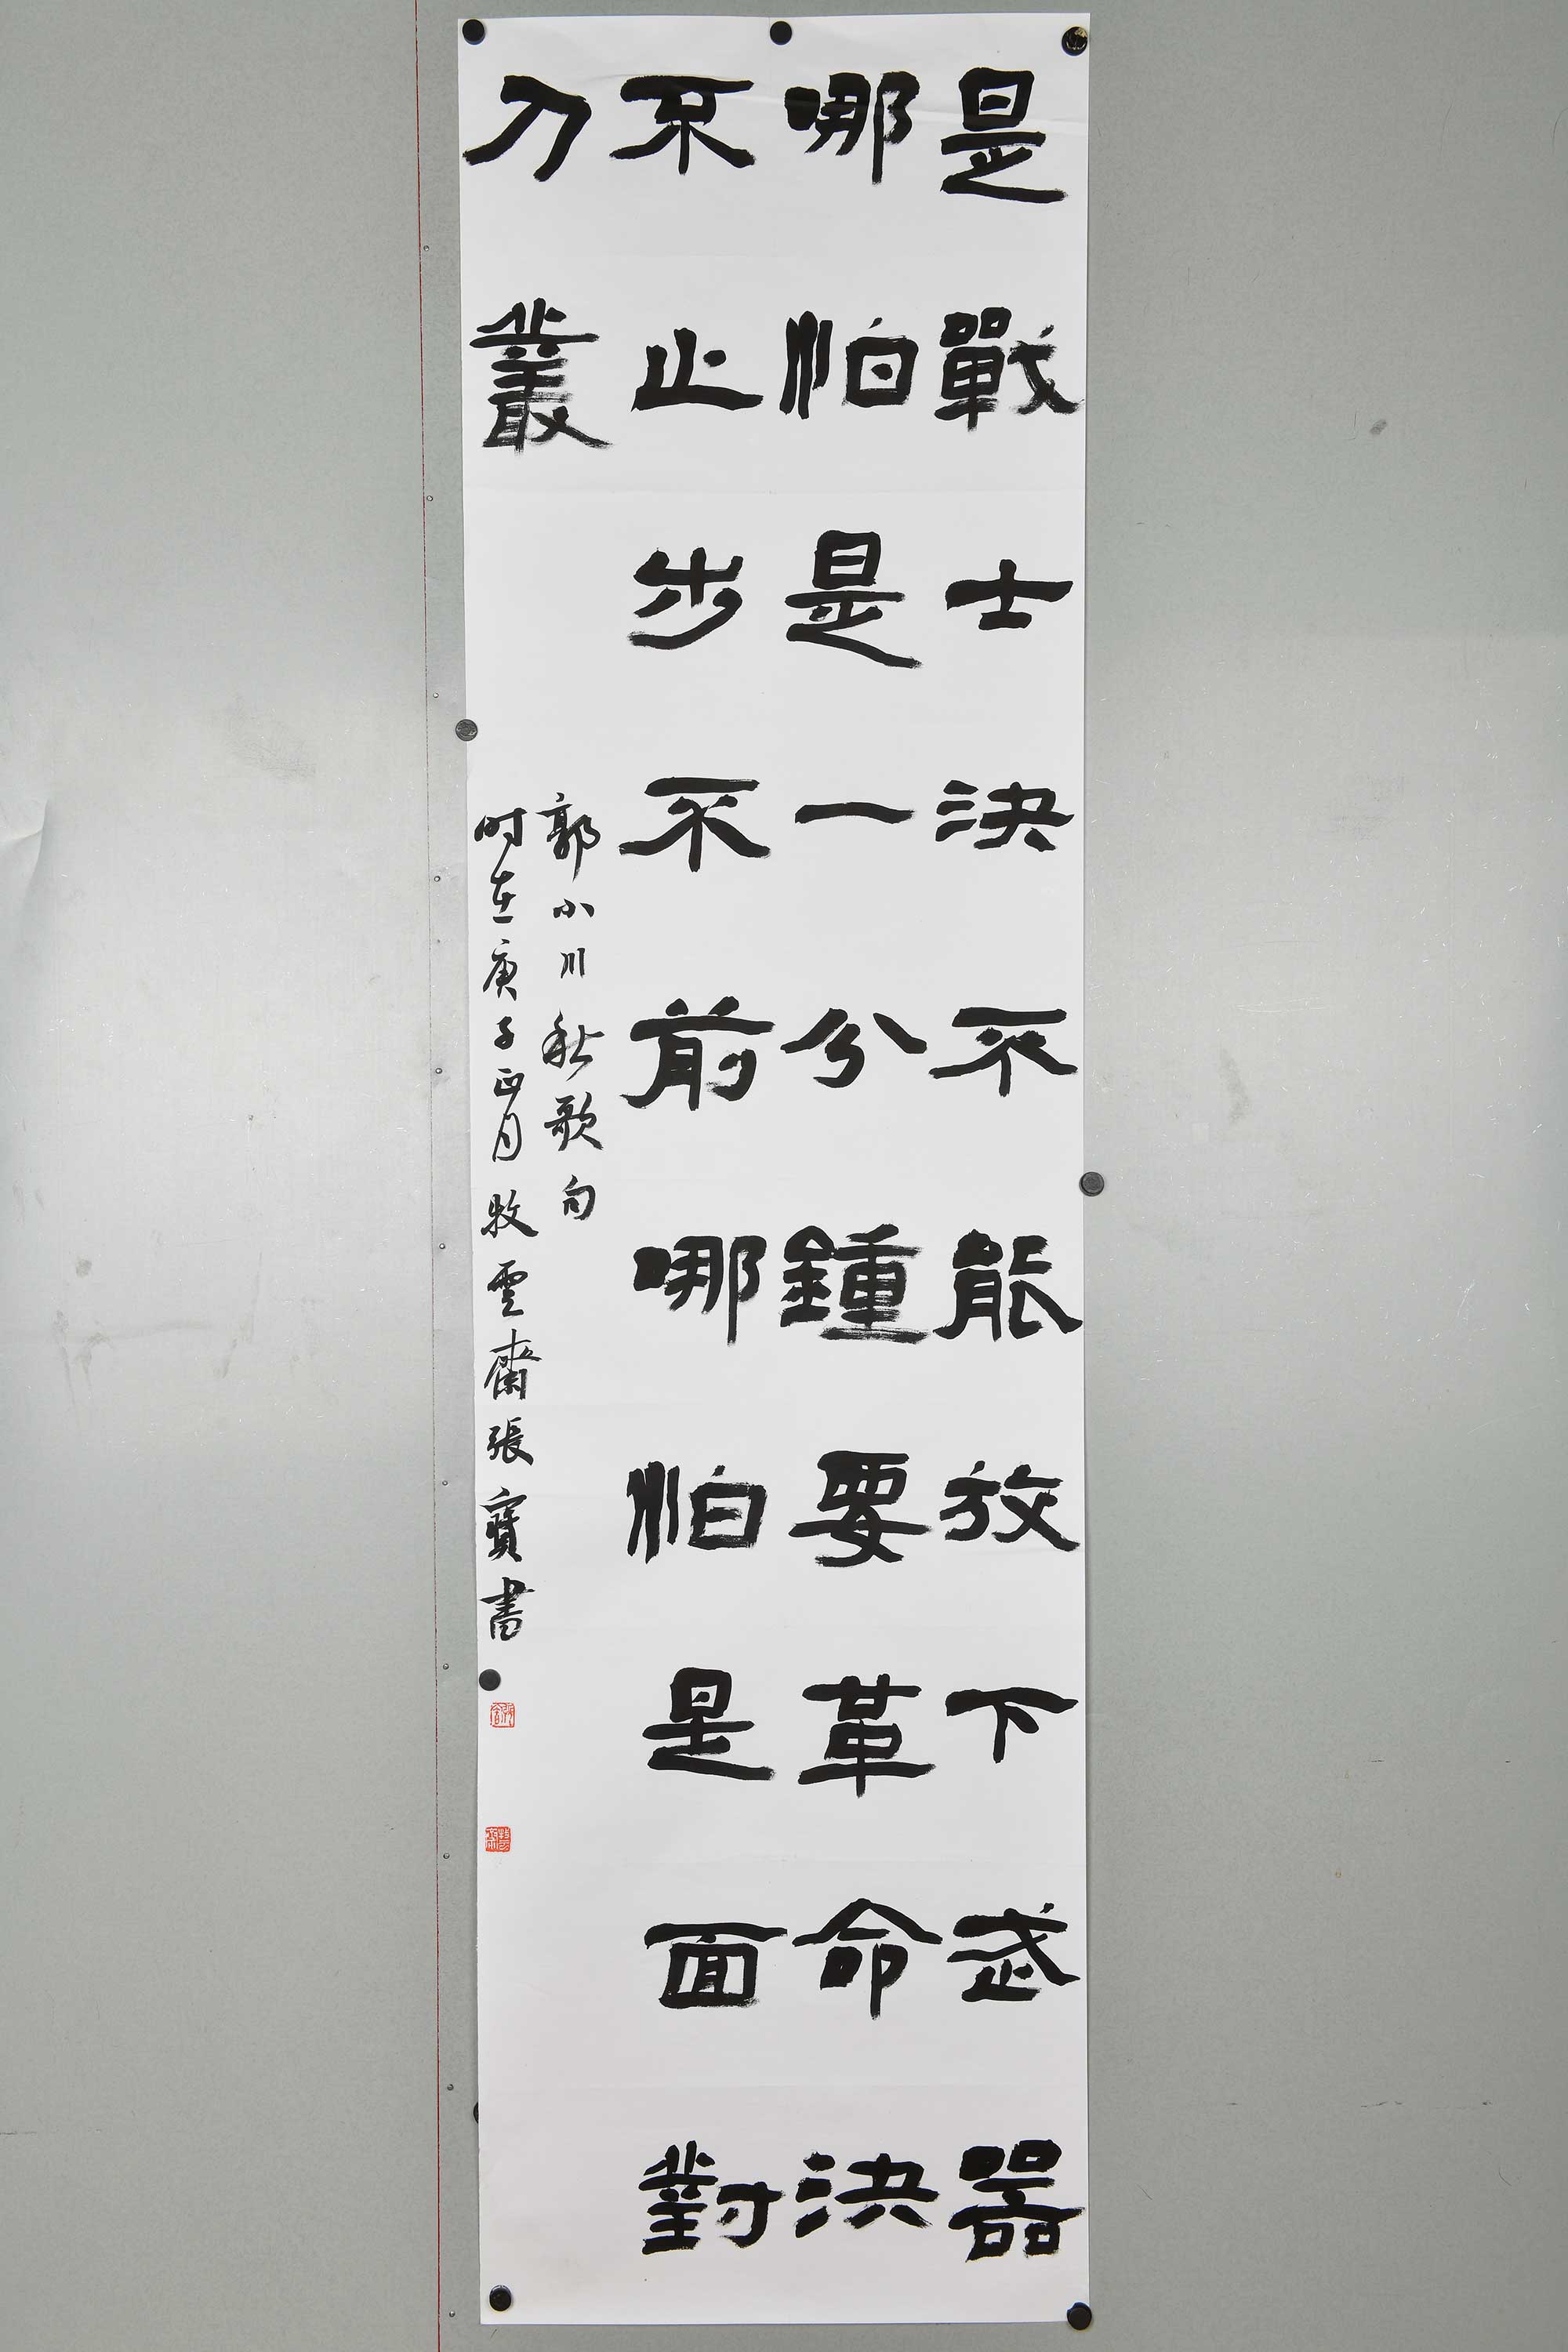 是戰士決不能放下武器
哪怕是一分鍾要革命決
不止步不前哪怕是面對
刀叢
郭小川秋歌句
时在庚子正月牧雲齋張寶書